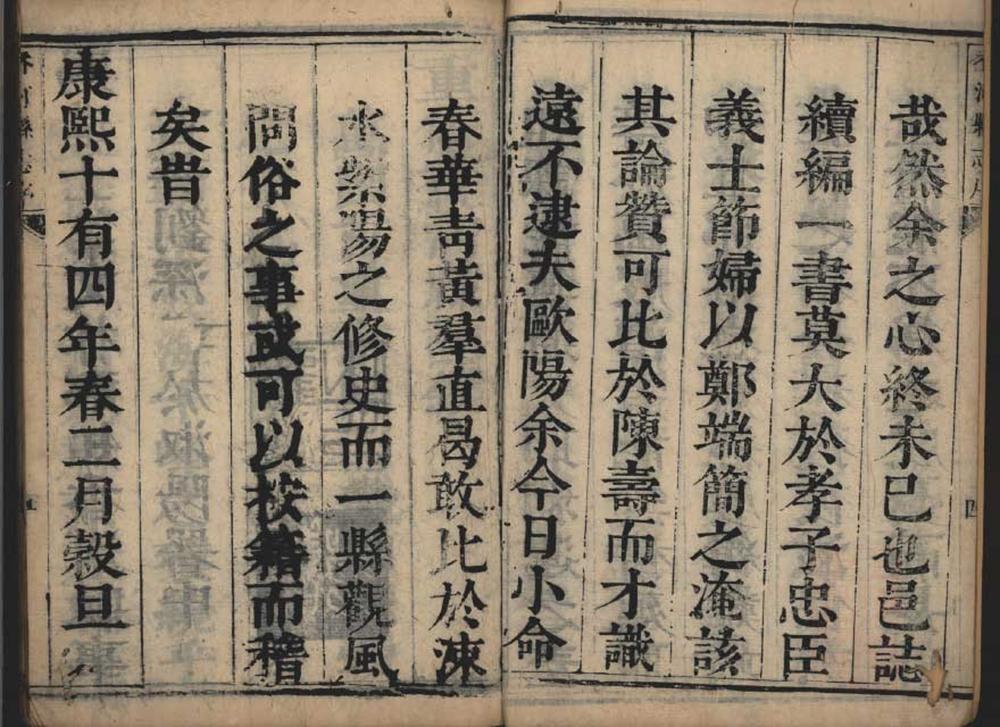 哉然余之心終未已也邑誌
續編一書莫大於孝子忠臣
義士節婦以鄭端簡之淹該
其論贊可比於陳壽而才識
遠不逮夫歐陽余今日小命
春華靑黃羣直曷敢比於涑
水紫陽之修史而一縣觀風
問俗之事或可以按籍而稽
矣旹
康熙十有四年春二月穀旦